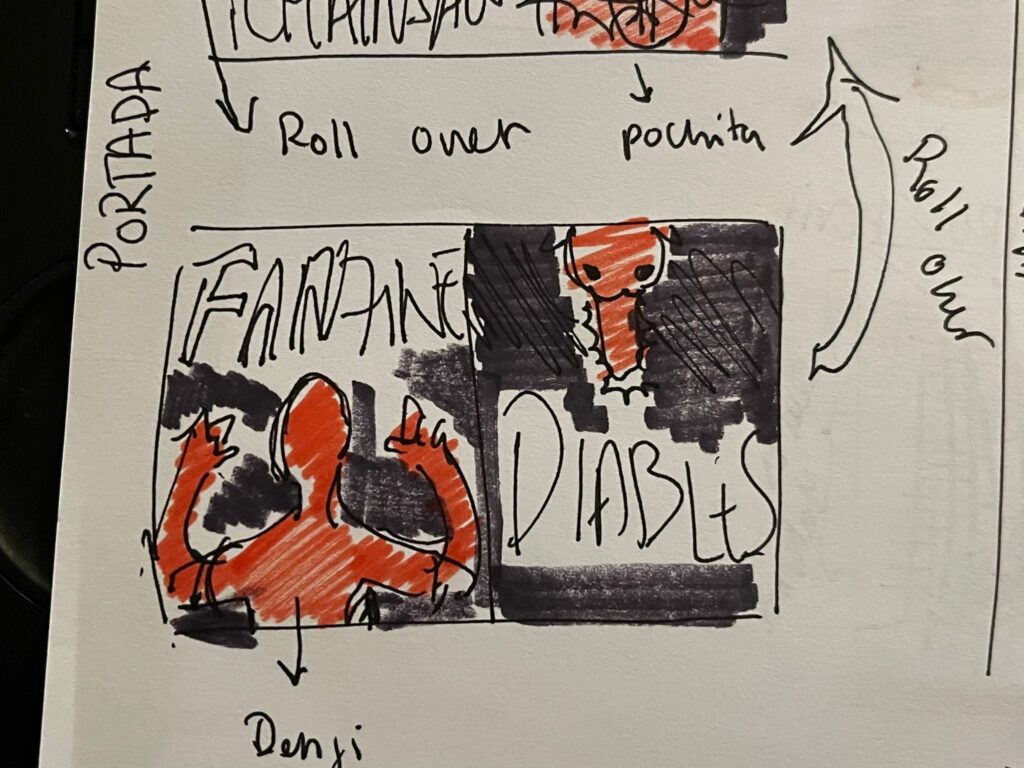 CHAINSAW
PORTADA
Roll over
pochita
Roll over
DIABLES
Denji